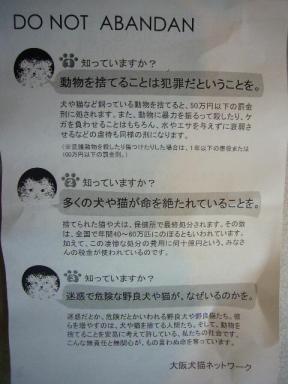 DO NOT ABANDAN
1 知っていますか？
動物を捨てることは犯罪だということを。
犬や猫など飼っている動物を捨てると、50万円以下の罰金
刑に処されます。また、動物に暴力を振るって殺したり、ケ
ガを負わせることはもちろん、水やエサを与えずに衰弱さ
せるなどの虐待も同様の刑になります。
(※愛護動物を殺したり傷つけたりした場合は、1年以下の懲役または
100万円以下の罰金刑。)
2 知っていますか？
多くの犬や猫が命を絶たれていることを。
捨てられた猫や犬は、保健所で最終処分されます。その数
は、全国で年間40〜60万匹にのぼるともいわれています。
加えて、この凄惨な処分の費用に何十億円という、みなさ
んの税金が使われているのです。
3 知っていますか？
迷惑で危険な野良犬や猫が、なぜいるのかを。
迷惑だとか、危険だとかいわれる野良犬や野良猫たち。彼
らを増やすのは、犬や猫を捨てる人間たち。そして、動物を
捨てることを安易に考えて許している、私たちの社会です。
こんな無責任と無関心が、もの言わぬ命を奪っています。
大阪犬猫ネットワーク